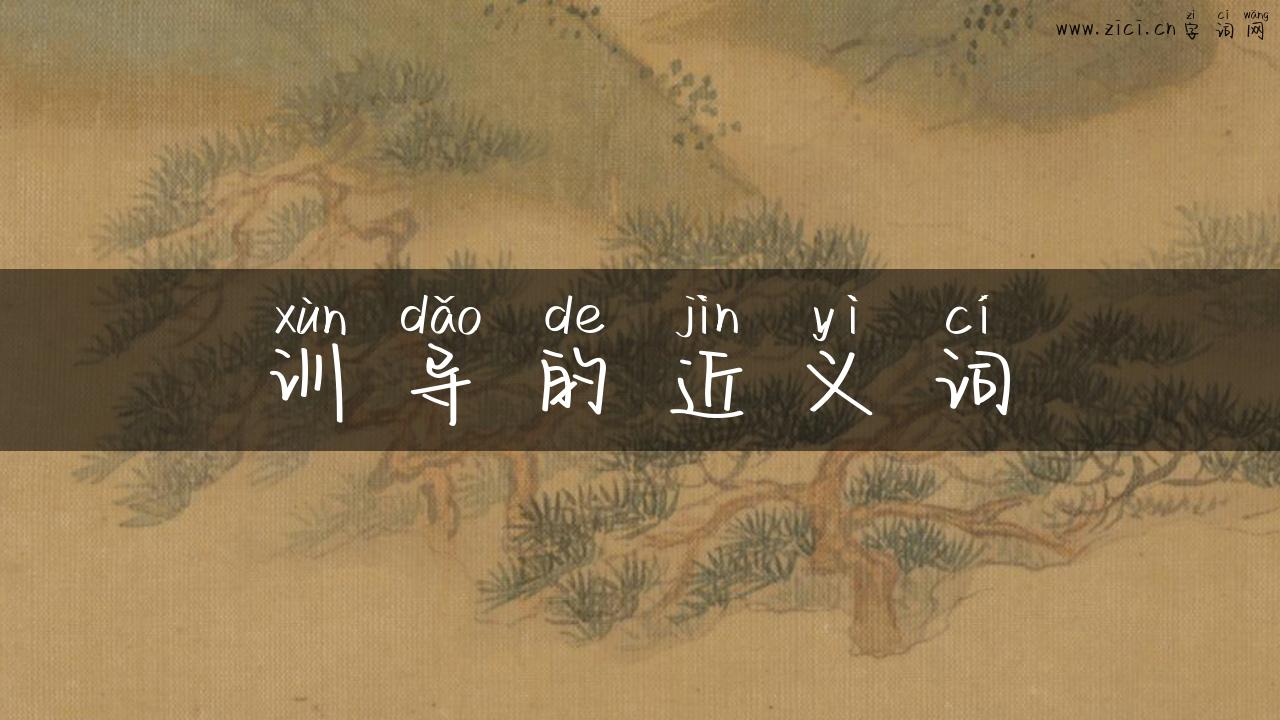 zì cí wǎng
www.zici.cn 字 词 网
xùn dǎo de jìn yì cí
训 导 的 近 义 词